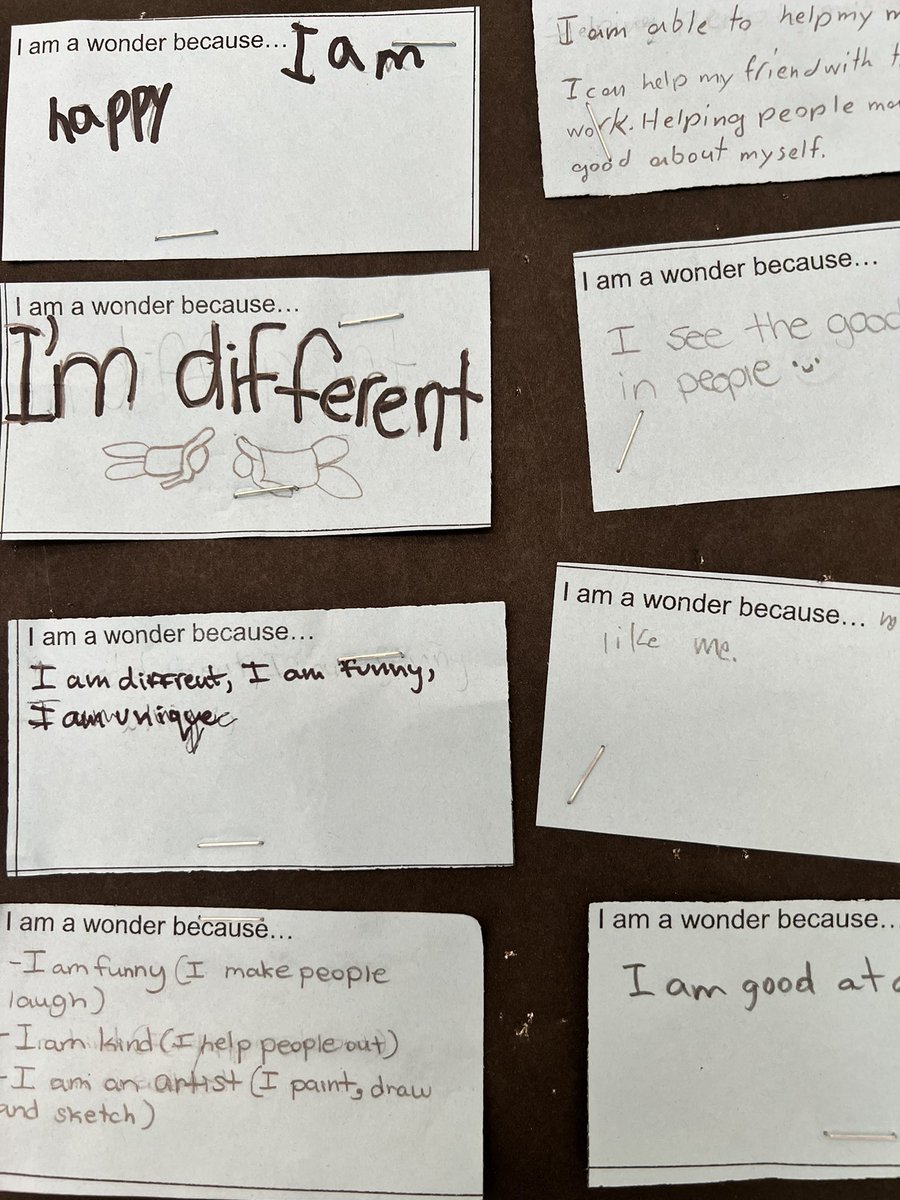 I am a wonder because... I am
happy
I am able to help my
I can help my friend with
work. Helping people
good about myself.
I am a wonder because...
I'm different
I am a wonder because...
I see the good
in people
I am a wonder because...
I am diffreut, I am funny,
I am
I am a wonder because...
like me.
I am a wonder because...
-I am funny (I make people
laugh)
-I am kind (I help people out)
-I am an artist (I paint, draw
and sketch)
I am a wonder because...
I am good at